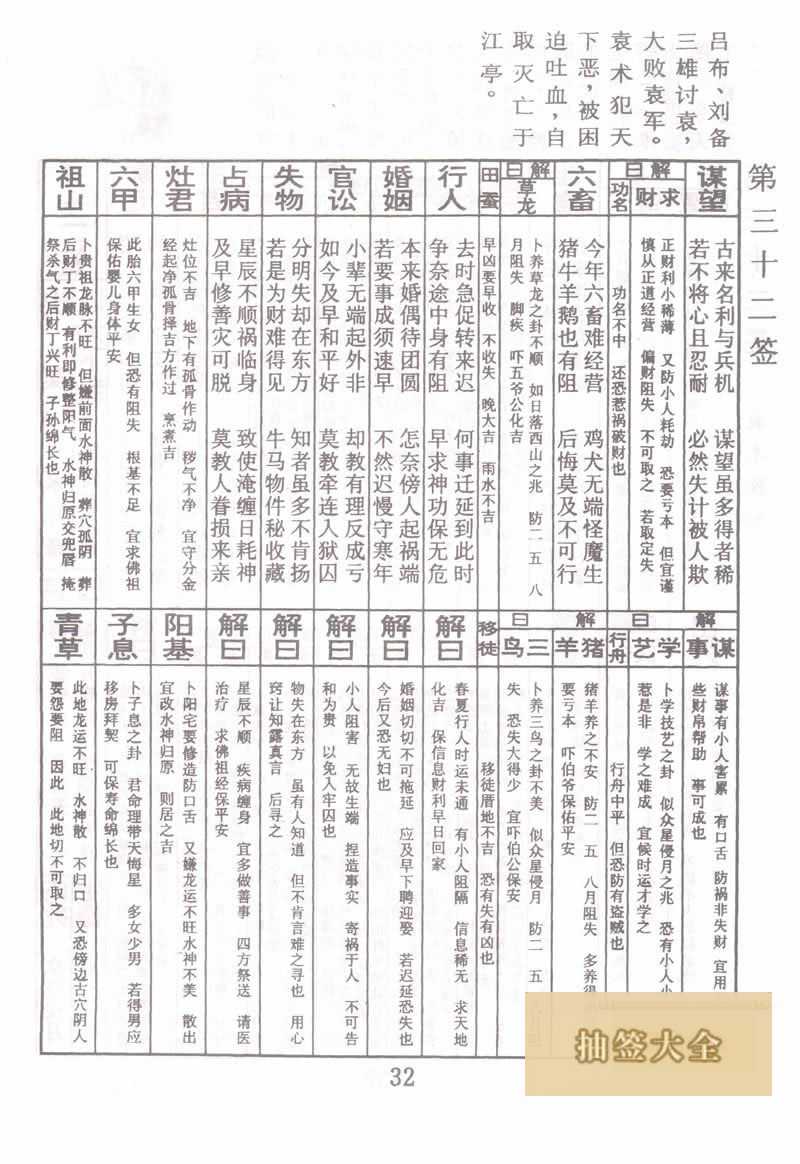 吕布、刘备
三雄讨袁，
大败袁军。
袁术犯天
下恶，被困
迫吐血，自
取灭亡于
江亭。
第三十二签
谋望
古来名利与兵机 谋望虽多得者稀
若不将心且忍耐 必然失计被人欺
解曰
求财
正财利小稀薄 又防小人耗劫 恐要亏本 但宜谨
慎从正道经营 偏财阻失 不可取之 若取定失
功名
功名不中 还恐惹祸破财也
六畜
今年六畜难经营 鸡犬无端怪魔生
猪牛羊鹅也有阻 后悔莫及不可行
解曰
草龙
卜养草龙之卦不顺 如日落西山之兆 防二 五 八
月阻失 脚疾 吓五爷公化吉
田蚕
早凶要早收 不收失 晚大吉 雨水不吉
行人
去时急促转来迟 何事迁延到此时
争奈途中身有阻 早求神功保无危
婚姻
本来婚偶待团圆 怎奈傍人起祸端
若要事成须速早 不然迟慢守寒年
官讼
小辈无端起外非 却教有理反成亏
如今及早和平好 莫教牵连入狱囚
失物
分明失却在东方 知者虽多不肯扬
若是为财难得见 牛马物件秘收藏
占病
星辰不顺祸临身 致使淹缠日耗神
及早修善灾可脱 莫教人眷损来亲
灶君
灶位不吉 地下有孤骨作动 秽气不净 宜守分金
经起净孤骨择吉方作过 烹煮吉
六甲
此胎六甲生女 但恐有阻失 根基不足 宜求佛祖
保佑婴儿身体平安
祖山
卜贵祖龙脉不旺 但嫌前面水神散 葬穴孤阴 葬
后财丁不顺 有利即修整阳气 水神归原交兜唇 掩
祭杀气之后财丁兴旺 子孙绵长也
解曰
谋事
谋事有小人害累 有口舌 防祸非失财 宜用
些财帛帮助 事可成也
学艺
卜学技艺之卦 似众星侵月之兆 恐有小人
惹是非 学之难成 宜候时运才学之
行舟
行舟中平 但恐防有盗贼也
解曰
猪羊
猪羊养之不安 防二 五 八月阻失 多养
要亏本 吓伯爷保佑平安
三鸟
卜养三鸟之卦不美 似众星侵月 防二 五
失 恐失大得少 宜吓伯公保安
移徒
移徒厝地不吉 恐有失有凶也
解曰
春夏行人时运未通 有小人阻隔 信息稀无 求天地
化吉 保信息财利早日回家
解曰
婚姻切切不可拖延 应及早下聘迎娶 若迟延恐失也
今后又恐无妇也
解曰
小人阻害 无故生端 捏造事实 寄祸于人 不可告
和为贵 以免入牢囚也
解曰
物失在东方 虽有人知道 但不肯言难之寻也 用心
窍让知露真言 后寻之
解曰
星辰不顺 疾病缠身 宜多做善事 四方祭送 请医
治疗 求佛祖经保平安
阳基
卜阳宅要修造防口舌 又嫌龙运不旺水神不美 散出
宜改水神归原 则居之吉
子息
卜子息之卦 君命理带天悔星 多女少男 若得男应
移房拜契 可保寿命绵长也
青草
此地龙运不旺 水神散 不归口 又恐傍边古穴阴人
要怨要阻 因此 此地切不可取之
32
抽签大全